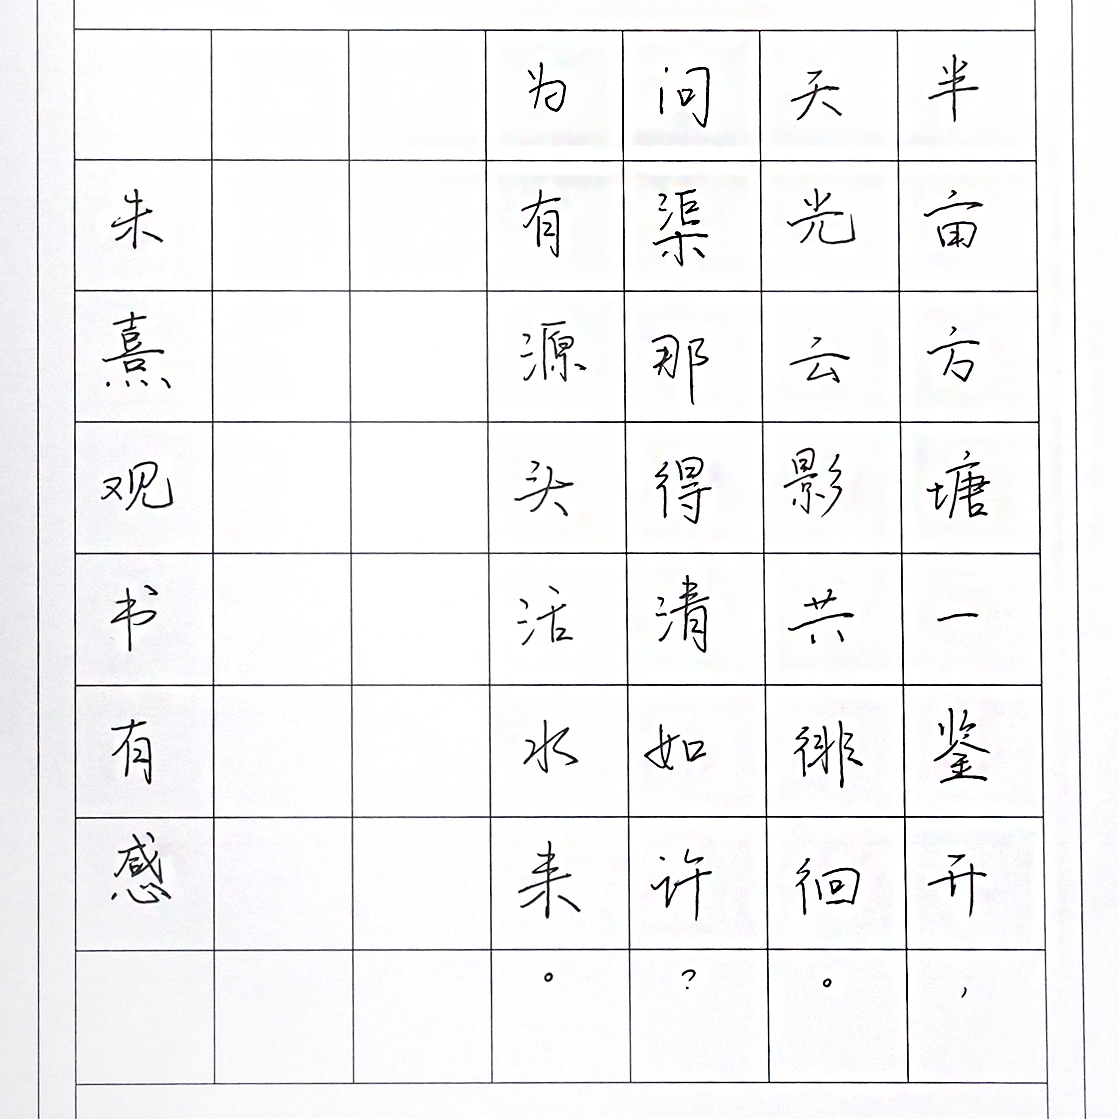 半亩方塘一鉴开，
天光云影共徘徊。
问渠那得清如许？
为有源头活水来。
朱熹观书有感